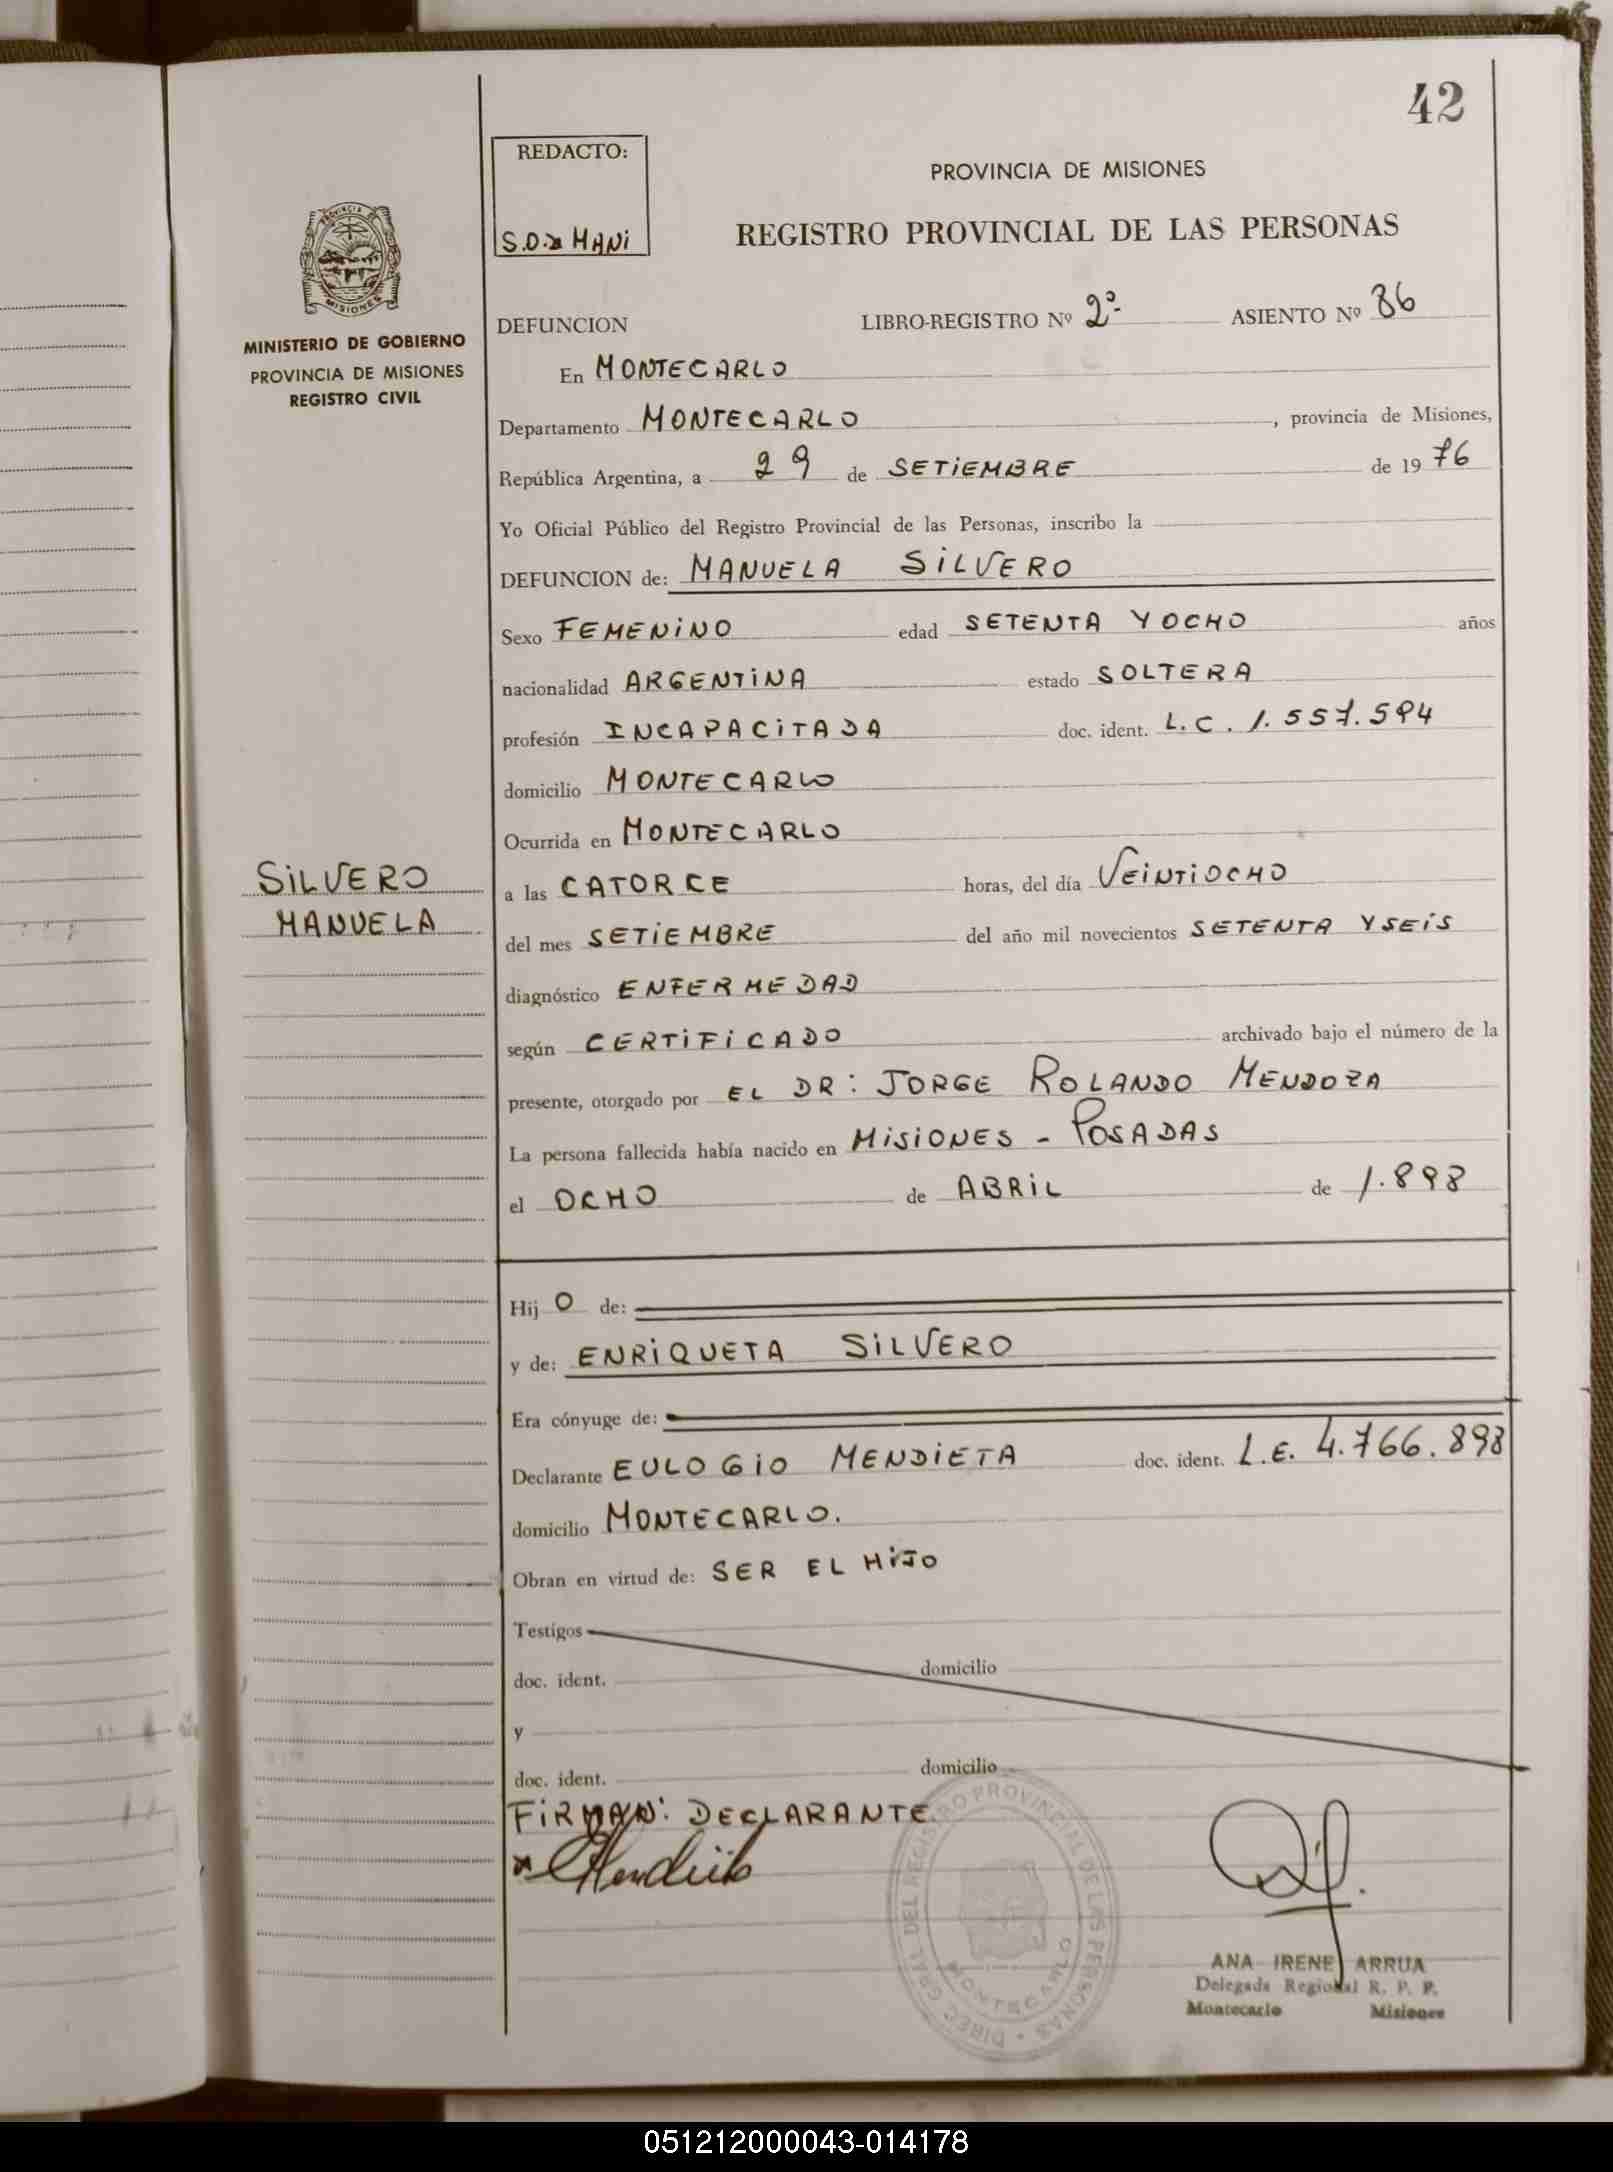 42
REDACTO:
PROVINCIA DE MISIONES
REGISTRO PROVINCIAL DE LAS PERSONAS
PROVINCIA DE
MISIONES
MINISTERIO DE GOBIERNO
PROVINCIA DE MISIONES
REGISTRO CIVIL
DEFUNCION LIBRO-REGISTRO Nº 2º- ASIENTO Nº 86
En MONTECARLO
Departamento MONTECARLO, provincia de Misiones,
República Argentina, a 29 de SETIEMBRE de 1976
Yo Oficial Público del Registro Provincial de las Personas, inscribo la
DEFUNCION de: MANUELA SILVERO
Sexo FEMENINO edad SETENTA Y OCHO años
nacionalidad ARGENTINA estado SOLTERA
profesión INCAPACITADA doc. ident. L.C. 1.557.594
domicilio MONTECARLO
Ocurrida en MONTECARLO
SILVERO
MANUELA
a las CATORCE horas, del día VEINTIOCHO
del mes SETIEMBRE del año mil novecientos SETENTA Y SEIS
diagnóstico ENFERMEDAD
según CERTIFICADO archivado bajo el número de la
presente, otorgado por EL DR: JORGE ROLANDO MENDOZA
La persona fallecida había nacido en MISIONES - POSADAS
el OCHO de ABRIL de 1.898
Hij O de:
y de: ENRIQUETA SILVERO
Era cónyuge de:
Declarante EULOGIO MENDIETA doc. ident. L.E. 4.766.898
domicilio MONTECARLO.
Obran en virtud de: SER EL HIJO
Testigos
doc. ident. domicilio
y
doc. ident. domicilio
FIRMAN: DECLARANTE.
DIREC. GRAL. DEL REGISTRO PROVINCIAL DE LAS PERSONAS
MONTECARLO
ANA IRENE ARRUA
Delegada Regional R. P. P.
Montecarlo Misiones
051212000043-014178